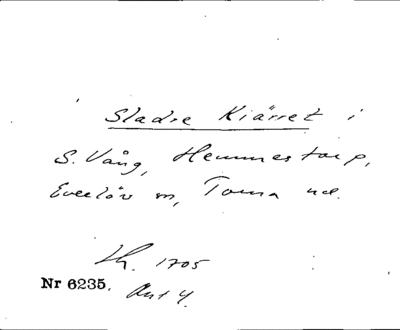 Sladre Kiärret i
S. Vång, Hemmestorp,
Everlöv sn, Torna hd.
Lh. 1705
Nr 6235. Akt 4.